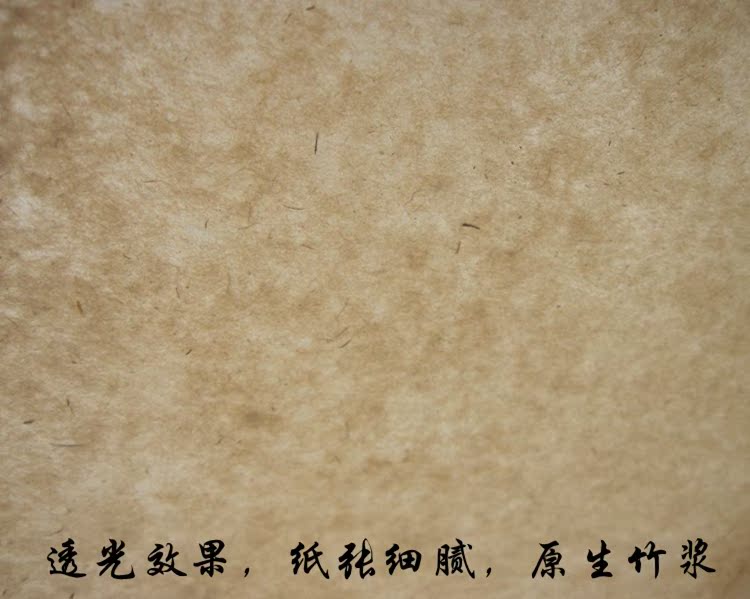 透光效果，纸张细腻，原生竹浆